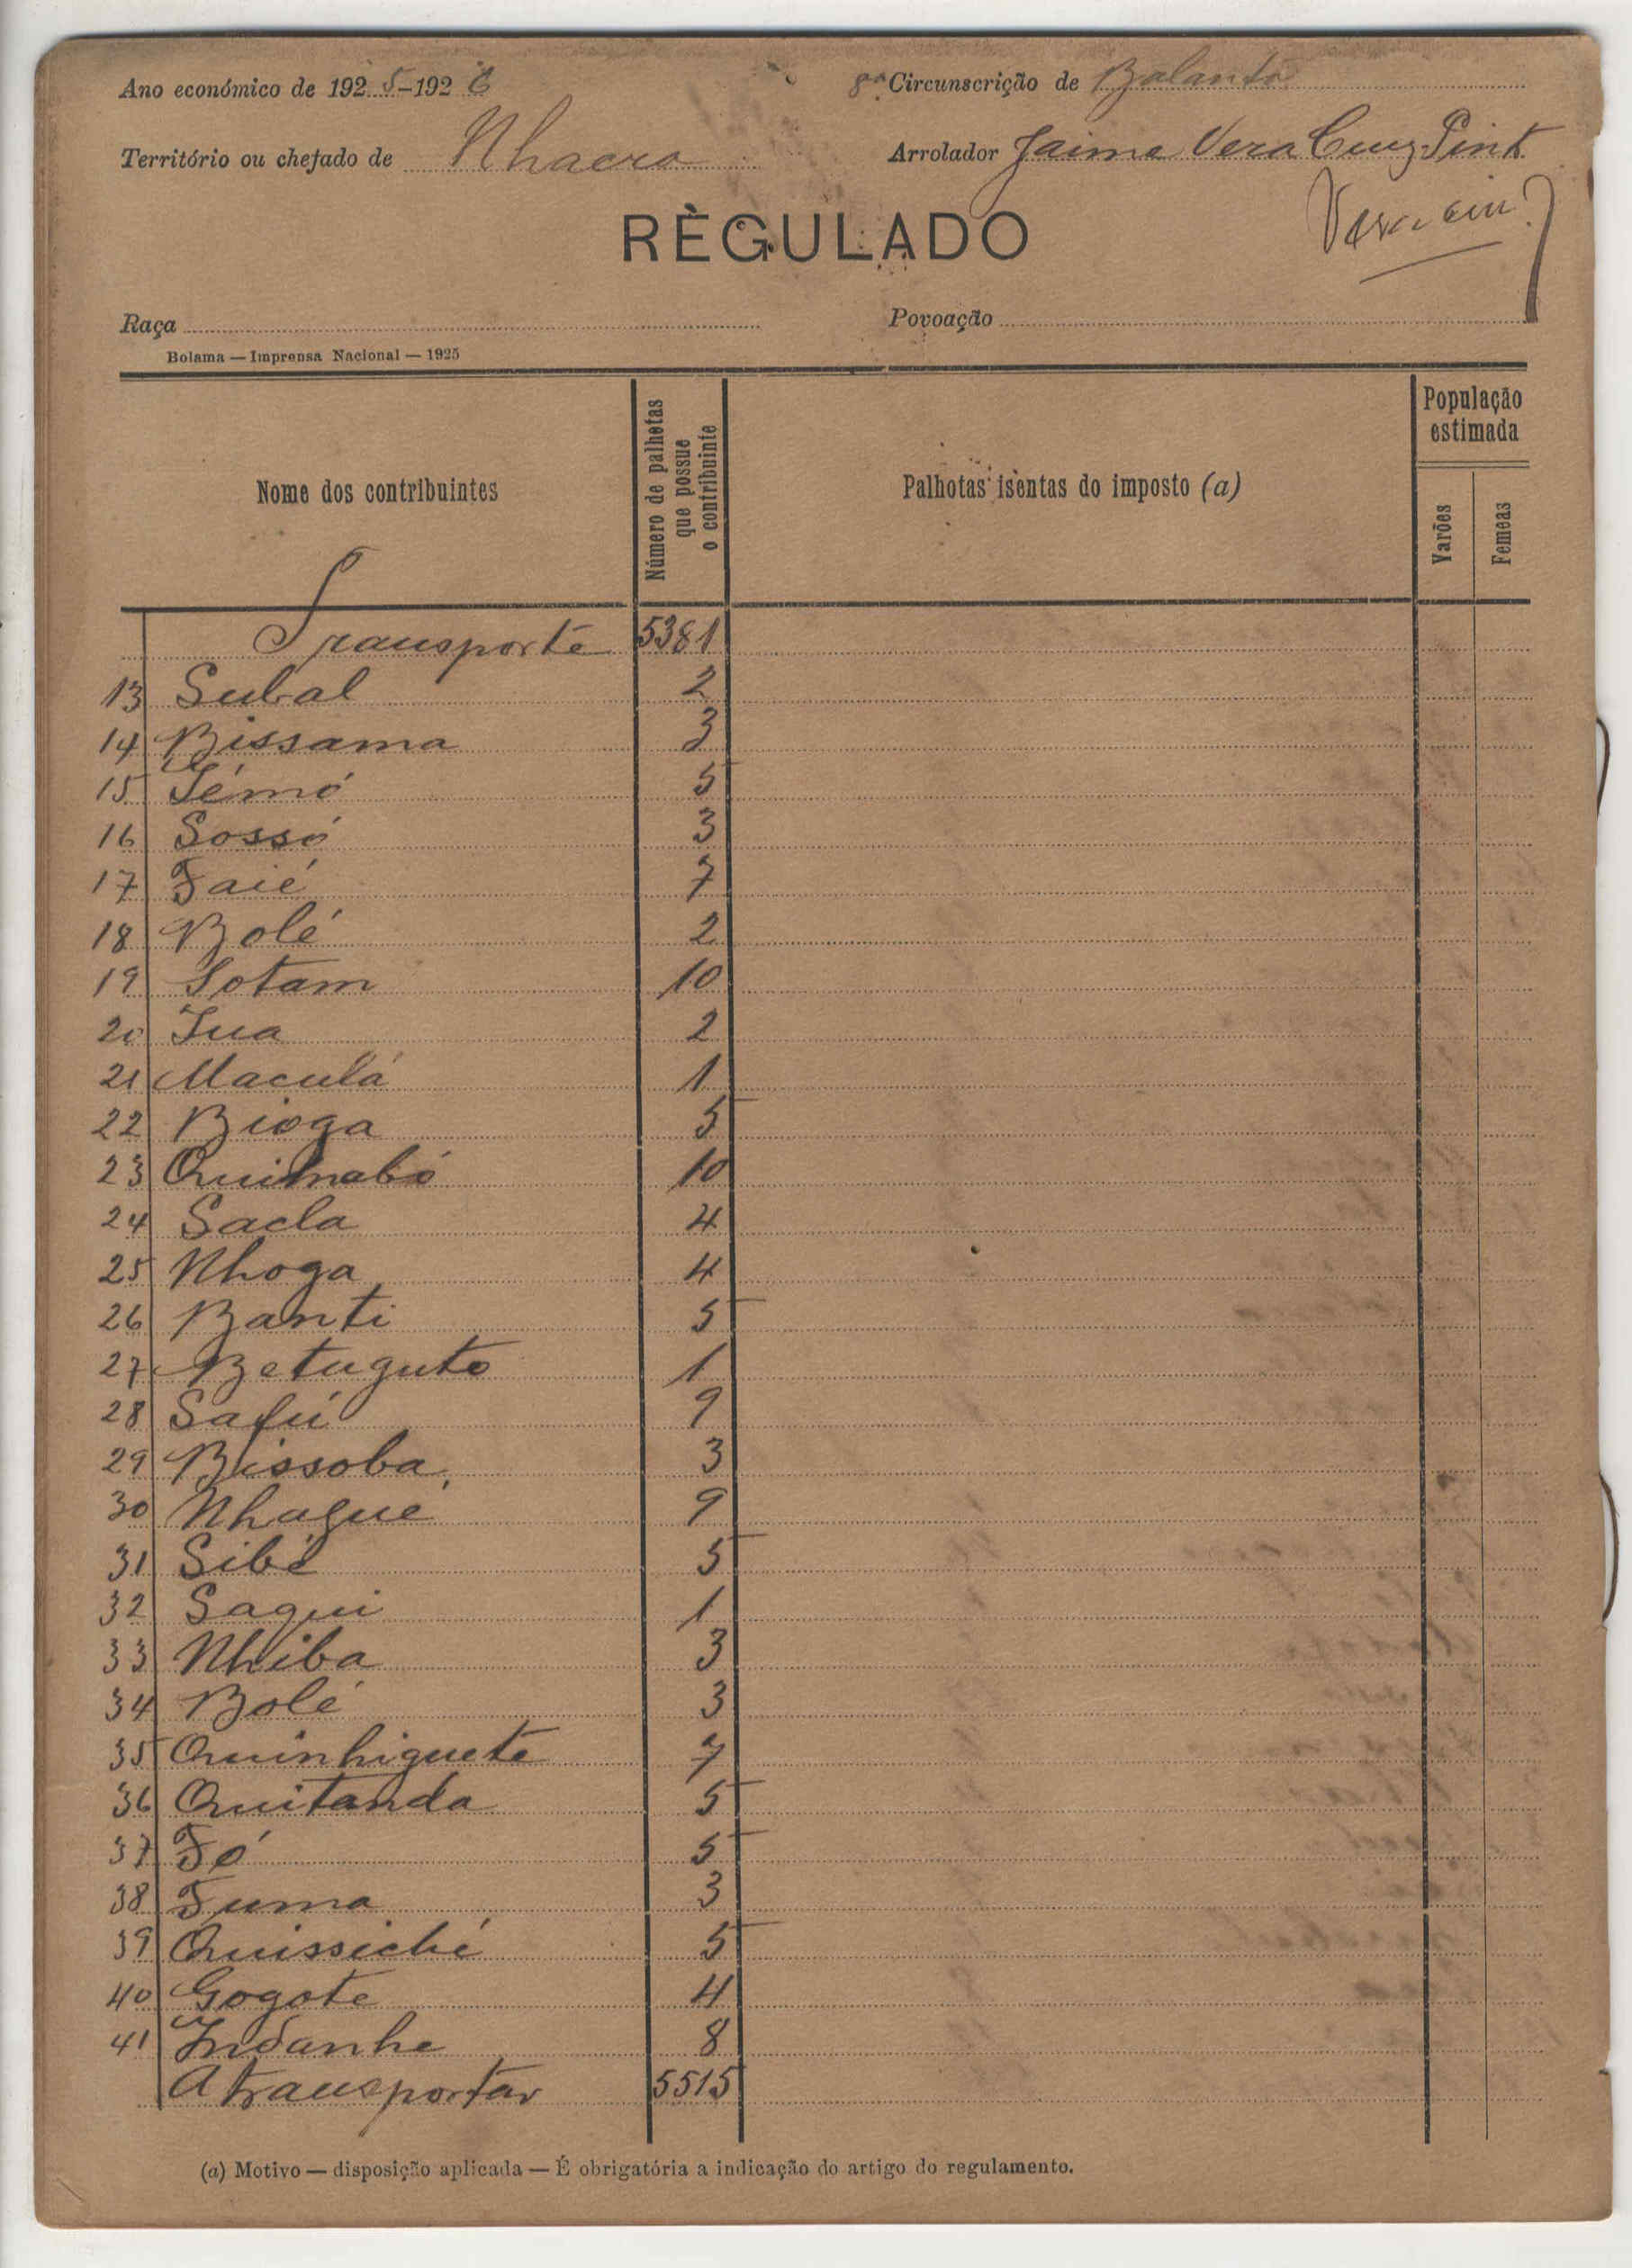 Ano económico de 1925-1926
8ª Circunscrição de Balanta
Território ou chefado de Nhacra
Arrolador Jaime Vera Cruz Pint
RÈGULADO
Raça
Povoação
Bolama — Imprensa Nacional — 1925
Nome dos contribuintes
Número de palhotas que possue o contribuinte
Palhotas isentas do imposto (a)
População estimada
Varões
Femeas
Transporte 5381
13 Subal 2
14 Bissama 3
15 Témó 5
16 Sossó 3
17 Faié 7
18 Bolé 2
19 Sotam 10
20 Iua 2
21 Maculá 1
22 Bioga 5
23 Quimabó 10
24 Sacla 4
25 Nhoga 4
26 Banti 5
27 Betuguto 1
28 Safú 9
29 Bissoba 3
30 Nhague 9
31 Sibé 5
32 Sagui 1
33 Nhiba 3
34 Bolé 3
35 Quinhiguete 7
36 Quitanda 5
37 Fó 5
38 Fuma 3
39 Quissiché 5
40 Gogote 4
41 Indanhe 8
A transportar 5515
(a) Motivo — disposição aplicada — É obrigatória a indicação do artigo do regulamento.